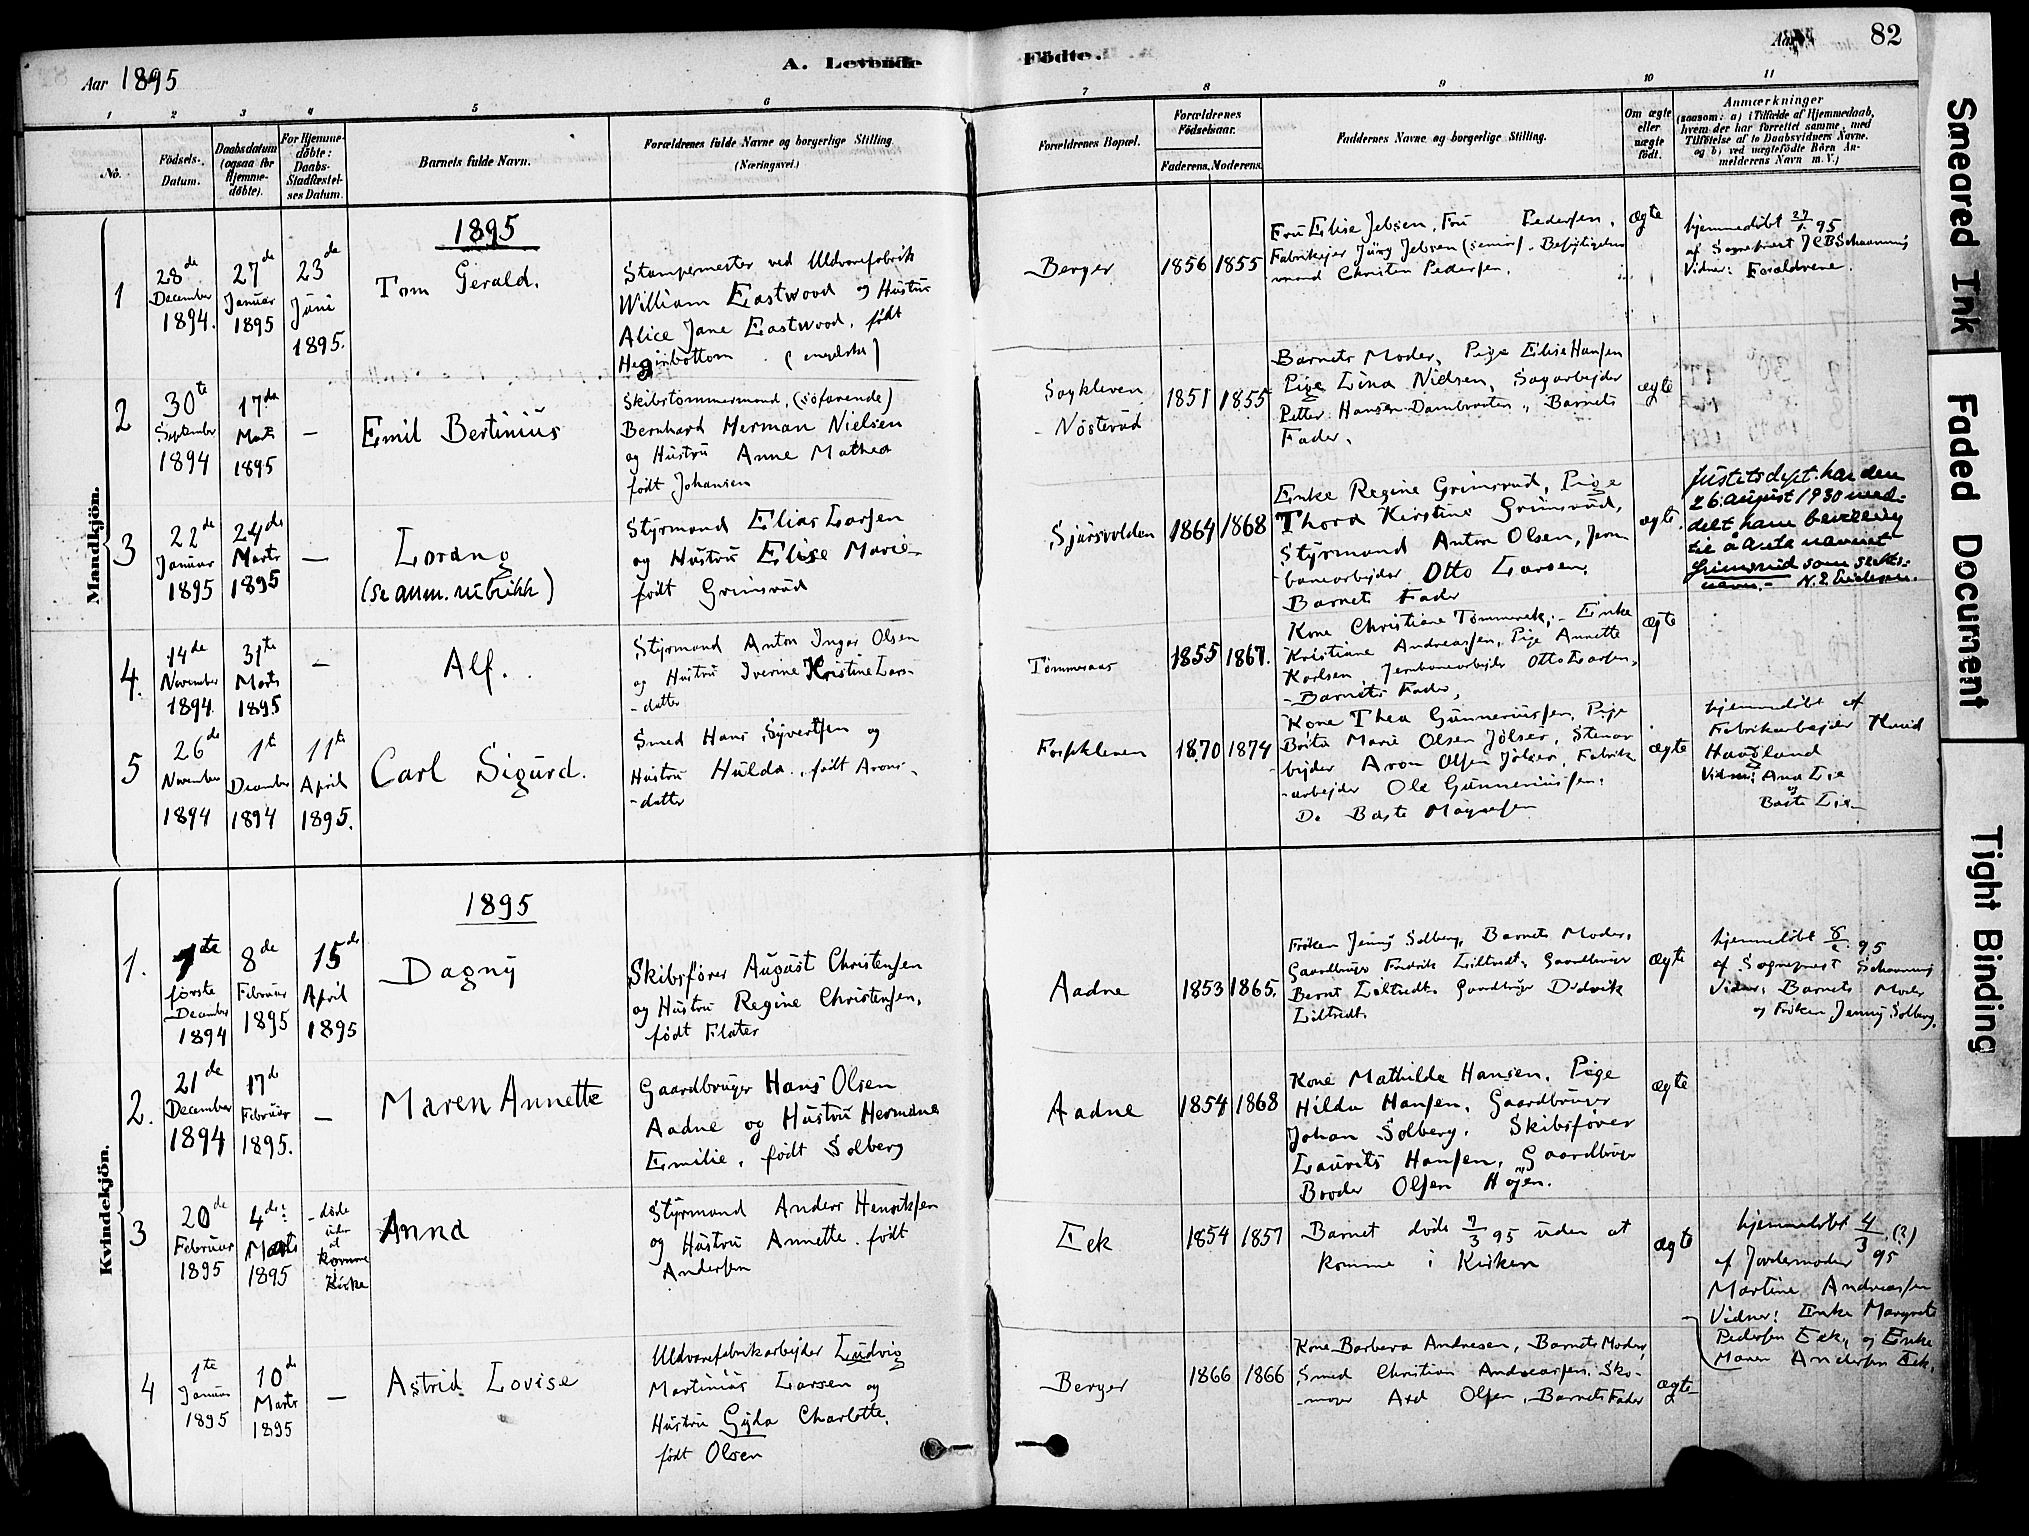 Aar 1895
A. Levende
Födte.
Aar
82
1
2
3
4
5
6
7
8
9
10
11
No.
Födsels-
Datum.
Daabsdatum
(ogsaa for
Hjemme-
döbte).
For Hjemme-
döbte:
Daabs-
Stadfæstel-
ses Datum.
Barnets fulde Navn.
Forældrenes fulde Navne og borgerlige Stilling
(Næringsvei.)
Forældrenes Bopæl.
Forældrenes
Födselsaar.
Faderens.
Moderens.
Faddernes Navne og borgerlige Stilling.
Om ægte
eller
uægte
födt.
Anmærkninger
(saasom: a) i Tilfælde af Hjemmedaab,
hvem der har forrettet samme, med
Tilföielse af to Daabsvidners Navne.
og b) ved uægtefödte Börn An-
melderens Navn m. V.)
Mandkjön.
1895
1
28de
December
1894.
27de
Januar
1895
23de
Juni
1895.
Tom Gerald.
Stampemester ved Uldvarefabrik
William Eastwood og Hustru
Alice Jane Eastwood, født
Heginbottom . (engelske)
Berger
1856
1855
Fru Elise Jebsen, Fru Pedersen,
Fabrikejer Jürg Jebsen (senior),
mand Christen Pedersen.
ægte
hjemmedøbt 27/1 95
af Sognepræst JCB Schaanning
Vidner: Forældrene.
2
30te
September
1894
17de
Marts
1895
—
Emil Bertinius
Skibstømmermand, (søfarende)
Bernhard Herman Nielsen
og Hustru Anne Mathea
født Johansen
Sagkleven
- Nøsterud
1851
1855
Barnets Moder, Pige Elise Hansen
Pige Lina Nielsen, Sagarbejder
Petter Hansen Dambraaten, Barnets
Fader.
ægte
3
22de
Januar
1895
24de
Marts
1895
—
Lorang
(se anm. rubrikk)
Styrmand Elias Larsen
og Hustru Elise Marie
født Grimsrud
Sjursvolden
1864
1868
Enke Regine Grimsrud, Pige
Thora Kirstine Grimsrud,
Styrmand Anton Olsen, Jern-
banearbejder Otto Larsen,
Barnets Fader
ægte
Justitsdept. har den
26. august 1930 med-
delt ham bevilling
til å anta navnet
Grimsrud som slekts-
navn.-
4.
14de
November
1894.
31te
Marts
1895
—
Alf.
Styrmand Anton Ingar Olsen
og Hustru Iverine Kristine Lars-
-datter
Tømmeraas
1855
1867.
Kone Christiane Tømmerek, - Enke
Kristiane Andreassen, Pige Annette
Karlsen Jernbanearbejder Otto Larsen,
- Barnets Fader,
ægte
5
26de
November
1894
1te
December
1894
11te
April
1895.
Carl Sigurd.
Smed Hans Syvertsen og
Hustru Hulda, født Arons-
-datter
Fossekleven
1870
1874
Kone Thea Gunneriussen, Pige
Marie Olsen Jølsen, Stenar-
bejder Aron Olsen Jølsen, Fabrik
-arbejder Ole Gunneriussen.
Do Baste Magnesen
ægte
hjemmedøbt af
Fabrikarbejder Knud
Haugland
Vidner: Ana Lie
og
Baste Lie
Kvindekjön.
1895
1.
1te
første
December
1894
8de
Februar
1895
15de
April
1895
Dagny
Skibsfører August Christensen
og Hustru Regine Christensen,
født Flater
Aadne
1853
1865.
Frøken Jenny Solberg, Barnets Moder,
Gaardbruger Fredrik Liltvedt, Gaardbruger
Bernt Liltvedt. Gaardbruger Didrik
Liltvedt.
ægte
hjemmedøbt 8/2 95
af Sognepræst Schaanning
Vidner: Barnets Moder
og Frøken Jenny Solberg.
2.
21de
December
1894
17de
Februar
1895.
—
Maren Annette
Gaardbruger Hans Olsen
Aadne og Hustru Hermana
Emilie, født Solberg
Aadne
1854
1868
Kone Mathilde Hansen, Pige
Hilda Hansen, Gaardbruger
Johan Solberg, Skibsfører
Laurits Hansen, Gaardbruger
Broder Olsen Højen.
ægte
3
20de
Februar
1895
4de:
Marts
1895
- døde
uden
at
komme
i
Kirke
Anna
Styrmand Anders Henriksen
og Hustru Annette født
Andersen
Eek
1854
1857
Barnet døde 7/3 95 uden at
komme i Kirken
ægte
hjemmedøbt 4/3 (?)
95
af Jordemoder
Martine Andreassen
Vidner: Enke Margrete
Pedersen Eek, og Enke
Maren Andersen Eek.
4
1te
Januar
1895
10de
Marts
1895
—
Astrid Lovise
Uldvarefabrikarbejder Ludvig
Martinius Larsen og
Hustru Gyda Charlotte,
født Olsen
Berger
1866
1866
Kone Barbara Andresen, Barnets Moder,
Smed Christian Andreassen, Sko-
-mager Axel Olsen, Barnets Fader
ægte
Smeared Ink
Faded Document
Tight Binding